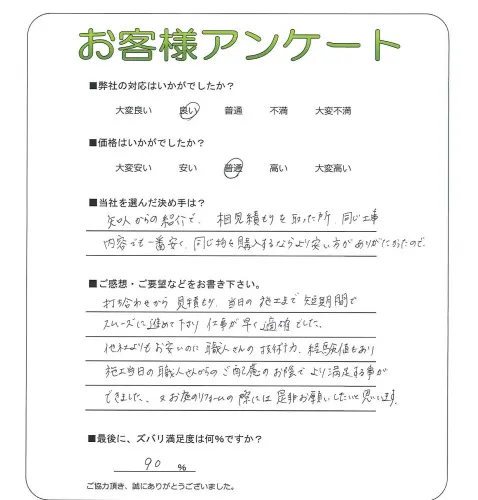 お客様アンケート
■弊社の対応はいかがでしたか？
大変良い 良い 普通 不満 大変不満
■価格はいかがでしたか？
大変安い 安い 普通 高い 大変高い
■当社を選んだ決め手は？
知人からの紹介で、相見積もりを取った所、同じ工事
内容でも一番安く、同じ物を購入するならより安い方がありがたかったので。
■ご感想・ご要望などをお書き下さい。
打ち合わせから見積もり、当日の施工まで短期間で
スムーズに進めて下さり仕事が早く適確でした。
他社よりもお安いのに職人さんの技術力、経験値もあり
施工当日の職人さんからのご配慮のお陰でより満足する事が
できました。又お庭のリフォームの際には是非お願いしたいと思います。
■最後に、ズバリ満足度は何%ですか？
90 %
ご協力頂き、誠にありがとうございました。